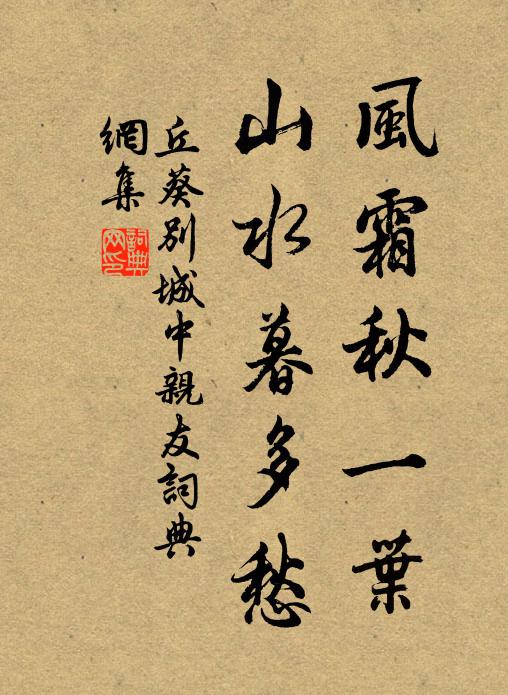 風霜秋一葉
山水暮多愁
丘葵別城中親友詞典
網集
詞典網印